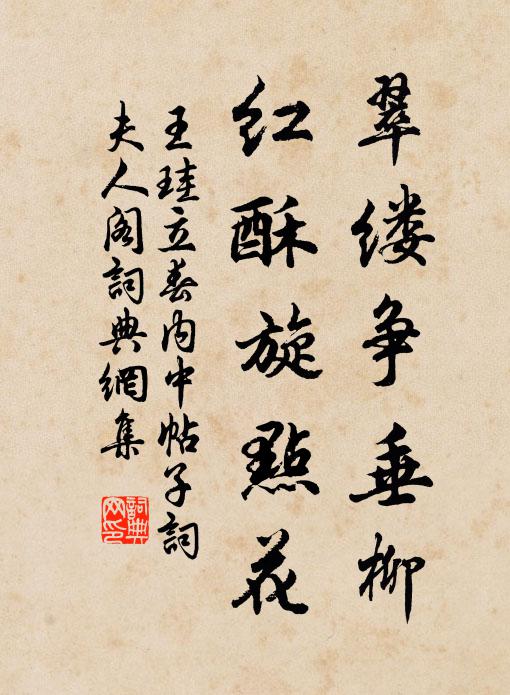 翠缕争垂柳
紅酥旋點花
王珪立春内中帖子詞
夫人阁詞典網集
詞典
网印